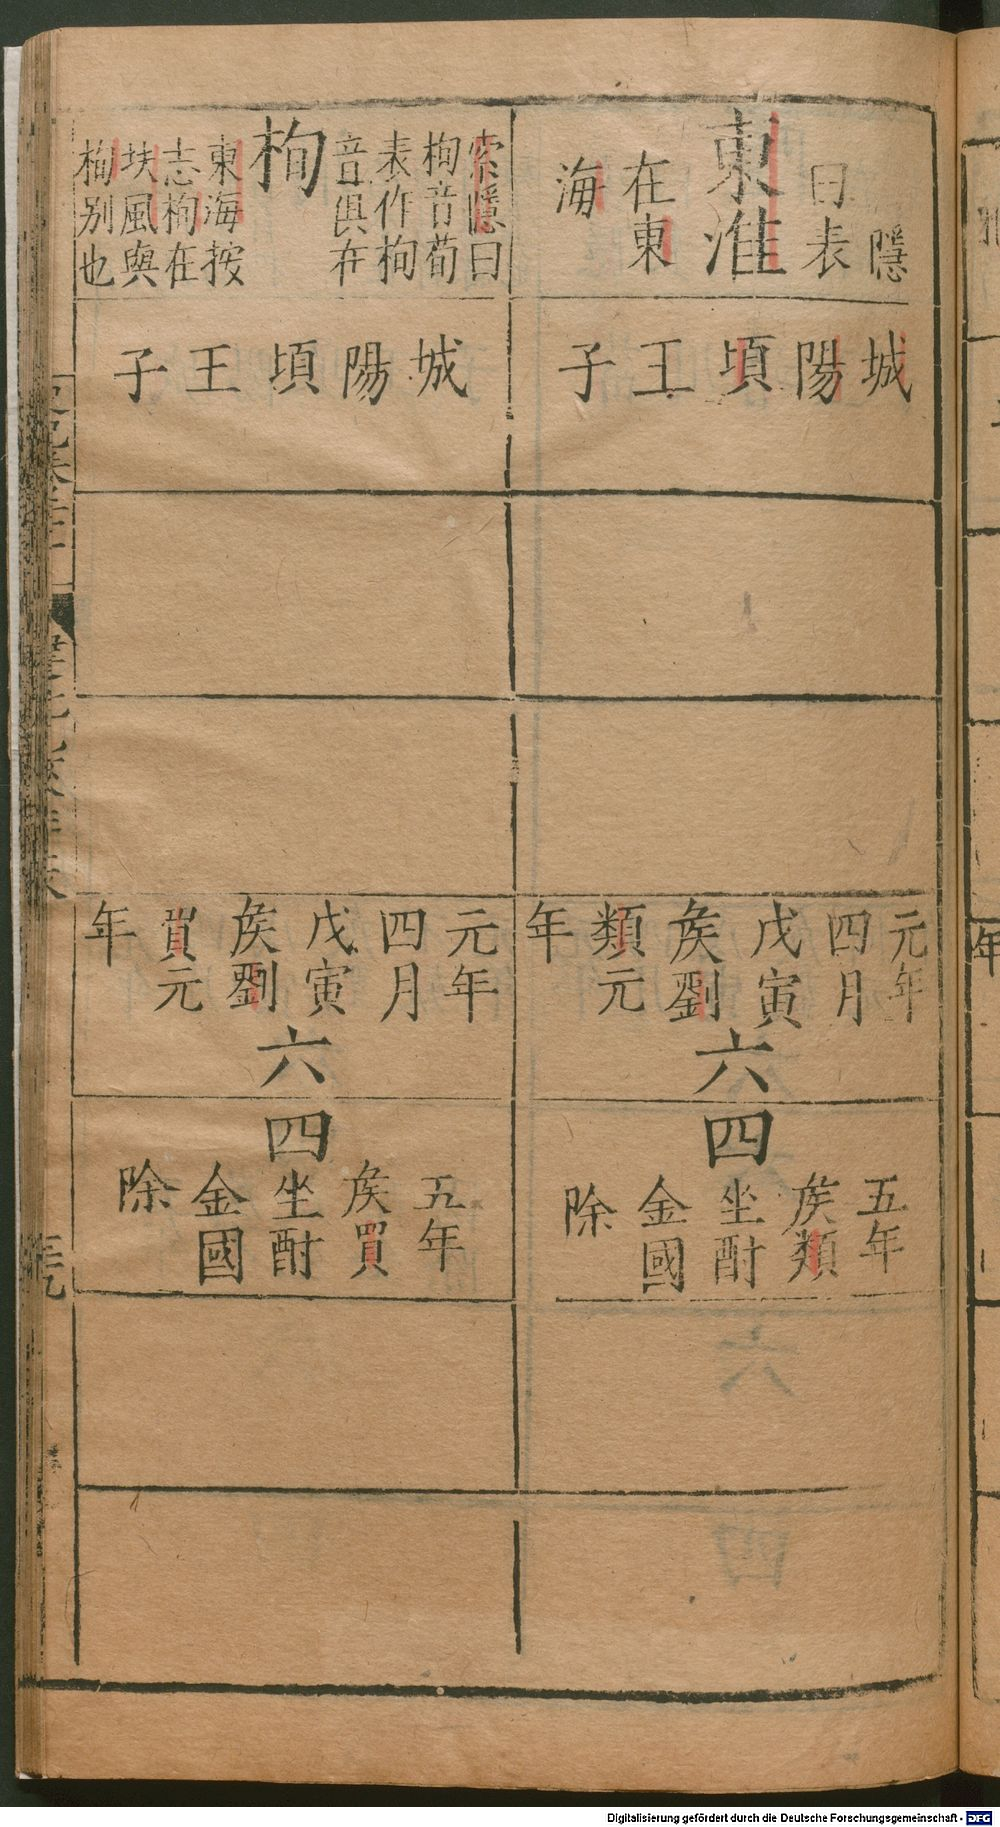 隱
曰表
東淮
在東
海
城陽頃王子
元年
四月
戊寅
矦劉
類元
年
六
四
五年
矦類
坐酎
金國
除
索隱曰
栒音荀
表作栒
音俱在
栒
東海按
志栒在
扶風與
栒别也
城陽頃王子
元年
四月
戊寅
矦劉
買元
年
六
四
五年
矦買
坐酎
金國
除
年
Digitalisierung gefördert durch die Deutsche Forschungsgemeinschaft - DFG